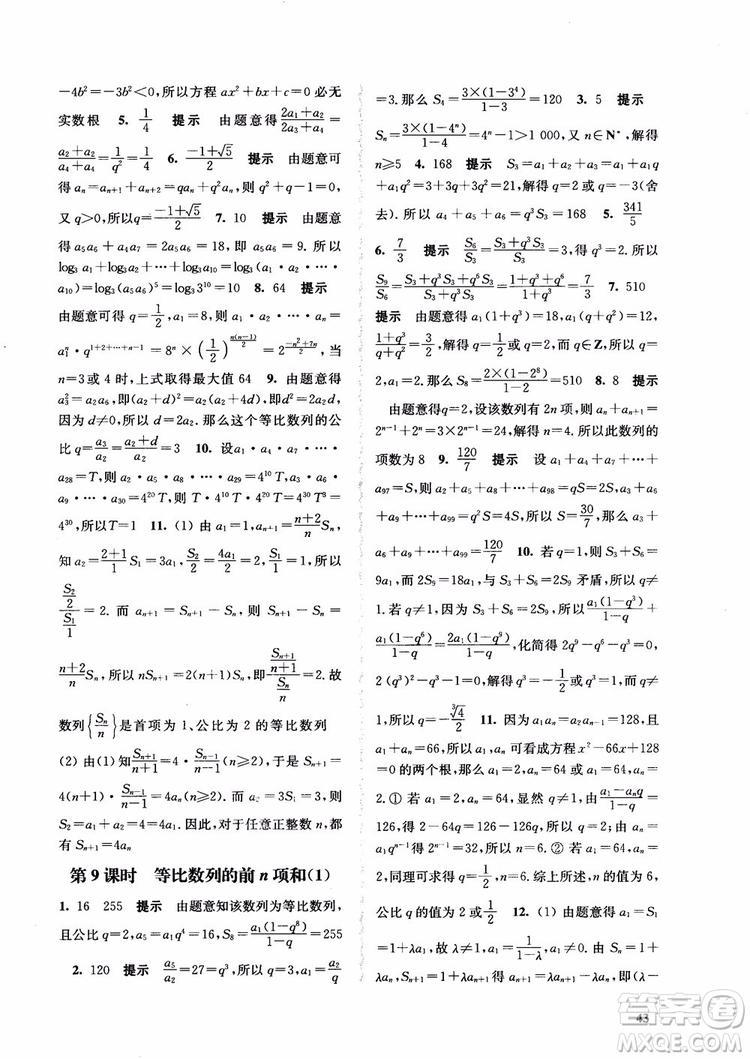 -4b²=-3b²<0,所以方程 ax²+bx+c=0 必无
实数根 5. 1/4 提示 由题意得(2a₁+a₂)/(2a₃+a₄)=
(a₂+a₂)/(a₄+a₄)=1/q²=4 6. (-1+√5)/2 提示 由题意可
得 aₙ=aₙ₊₁+aₙ₊₂=qaₙ+q²aₙ,所以 q²+q=1,
又 q>0,所以 q=(-1+√5)/2 7. 10 提示 由题意
得 a₅a₆+a₄a₇=2a₅a₆=18,所以 a₅a₆=9.所以
log₃a₁+log₃a₂+…+log₃a₁₀=log₃(a₁·a₂·…·
a₁₀)=log₃(a₅a₆)⁵=log₃3¹⁰=10 8. 64 提示
由题意可得 q=1/2,a₁=8,所以 a₁·a₂·…·aₙ=
a₁ⁿ·q^(1+2+…+n-1)=8ⁿ×(1/2)^(n(n-1)/2)=2^((-n²+7n)/2),当
n=3 或 4 时,上式取得最大值 64 9. 3 提示
a₃²=a₂a₆,所以(a₂+d)²=a₂(a₂+4d),所以 d²=2a₂d,
因为 d≠0,所以 d=2a₂.那么这个等比数列的公
比 q=a₃/a₂=(a₂+d)/a₂=3 10. 设a₁·a₄·a₇·…·
a₂₈=T,则 a₂·a₅·a₈·…·a₂₉=4¹⁰T,a₃·a₆·
a₉·…·a₃₀=4²⁰T,所以 a₁·a₂·…·a₃₀=4³⁰T³=
4³⁰,所以T=1 11. (1) 由 a₁=1,aₙ₊₁=(n+2)/n Sₙ,
知 a₂=(2+1)/1 S₁=3a₁,S₂/2=4a₁/2=2,S₁/1=1,所以
(S₂/2)/(S₁/1)=2. 而 aₙ₊₁=Sₙ₊₁-Sₙ,则 Sₙ₊₁-Sₙ=
(n+2)/n Sₙ,所以 nSₙ₊₁=2(n+1)Sₙ,(Sₙ₊₁/(n+1))/(Sₙ/n)=2.故
数列{Sₙ/n}是首项为 1,公比为 2 的等比数列
(2) 由(1)知 Sₙ₊₁/(n+1)=4·Sₙ₋₁/(n-1)(n≥2),于是 Sₙ₊₁=
4(n+1)·Sₙ₋₁/(n-1)=4aₙ(n≥2).又 a₂=3S₁=3,则
S₂=a₁+a₂=4=4a₁.因此,对于任意正整数n≥1,都
有 Sₙ₊₁=4aₙ
第 9 课时 等比数列的前 n 项和(1)
1. 16 255 提示 由题意知该数列为等比数列,
且公比 q=2,a₅=a₁q⁴=16,S₈=a₁(1-q⁸)/(1-q)=255
2. 120 提示 a₅/a₂=27=q³,所以 q=3,a₁=a₂/q
=3.那么 S₄=3×(1-3⁴)/(1-3)=120 3. 5 提示
Sₙ=3×(1-4ⁿ)/(1-4)=4ⁿ-1>1 000,又 n∈N*,解得
n≥5 4. 168 提示 S₃=a₁+a₂+a₃=a₁+a₁q
+a₁q²=3+3q+3q²=21,解得 q=2 或 q=-3(舍
去).所以 a₄+a₅+a₆=q³S₃=168 5. 341/5
6. 7/3 提示 S₆/S₃=(S₃+q³S₃)/S₃=1+q³=3,q³=2.所以
S₉/S₆=(S₃+q³S₃+q⁶S₃)/(S₃+q³S₃)=(1+q³+q⁶)/(1+q³)=7/3 7. 510
提示 由题意得 a₁(1+q³)=18,a₁(q+q²)=12,
(1+q³)/(q+q²)=3/2,解得 q=2 或 q=1/2.因为 q∈Z,所以 q=
2,a₁=2,S₈=2×(1-2⁸)/(1-2)=510 8. 8 提示
由题意得 q=2,设该数列有 2n 项,则 aₙ+aₙ₊₁=
2ⁿ⁻¹+2ⁿ=3×2ⁿ⁻¹=24,解得 n=4.所以此数列的
项数为 8 9. 120/7 提示 设 a₁+a₄+a₇+…+
a₉₇=S,则 a₂+a₅+…+a₉₈=qS=2S,a₃+a₆+…+
a₉₉=q²S=4S,所以 S+2S+4S=30,S=30/7,所以 a₃
+a₆+…+a₉₉=120/7 10. 若 q=1,则 S₃+S₆=
9a₁,而 2S₉=18a₁,与 S₃+S₆=2S₉ 矛盾,所以 q≠
1.若 q≠1,由 S₃+S₆=2S₉,所以 a₁(1-q³)/(1-q)+
a₁(1-q⁶)/(1-q)=2a₁(1-q⁹)/(1-q),化简得 2q⁶-q³-1=0,即
2(q³)²-q³-1=0,解得 q³=-1/2 或 q³=1.因为 q≠
1,所以 q=-∛4/2 11. 因为 a₁aₙ=a₂aₙ₋₁=128,
a₁+aₙ=66,所以 a₁,aₙ可看成方程 x²-66x+128=0
的两个根,解得 a₁=2,aₙ=64 或 a₁=64,aₙ=
2.① 若 a₁=2,aₙ=64,显然 q≠1,由 (a₁-aₙq)/(1-q)=
126,得 2-64q=126-126q,所以 q=2,由 aₙ=
a₁qⁿ⁻¹,得 2ⁿ⁻¹=32,所以 n=6. ② 若 a₁=64,aₙ=
2,同理可求得 q=1/2,n=6.综上所述,n 的值为 6,
公比 q 的值为 2 或 1/2 12. (1) 由题意得 a₁=S₁
=1+λa₁,故 λ≠1,a₁=1/(1-λ),故 a₁≠0.由 Sₙ=1+
λaₙ,Sₙ₊₁=1+λaₙ₊₁得 aₙ₊₁=λaₙ₊₁-λaₙ,即(λ-
43
答案卷